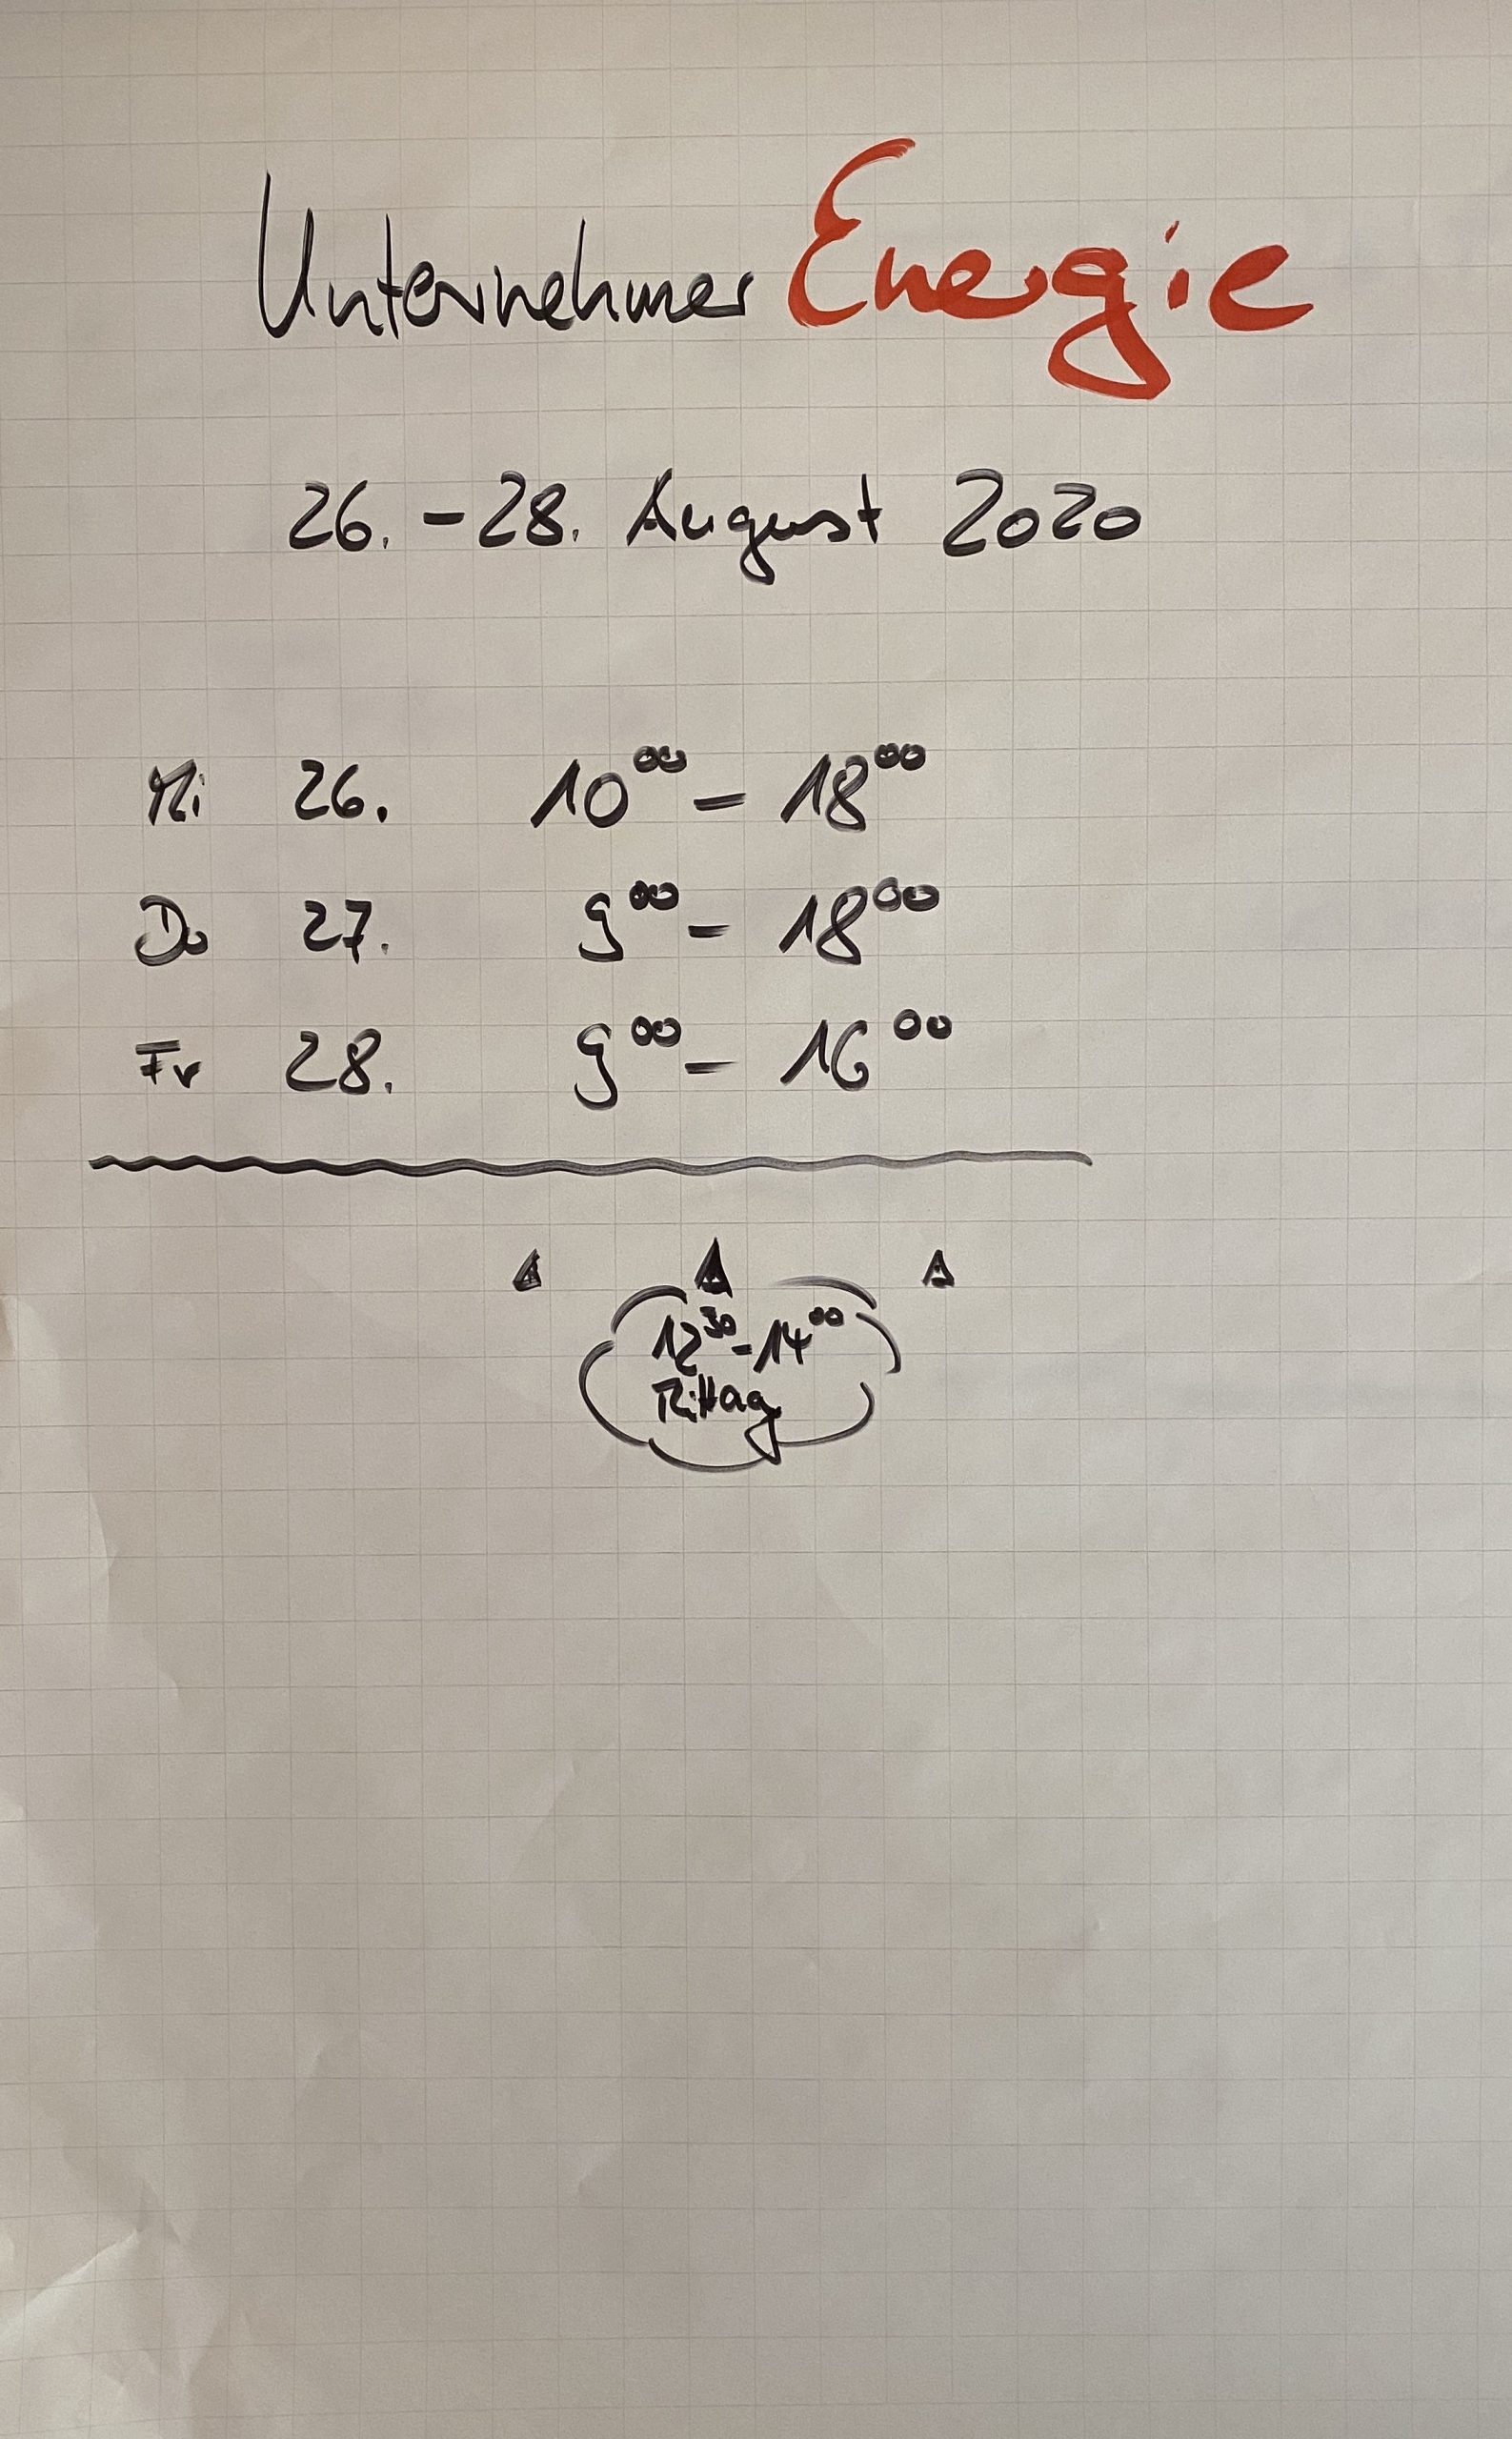 Unternehmer Energie
26. - 28. August 2020
Mi 26. 10⁰⁰ - 18⁰⁰
Do 27. 9⁰⁰ - 18⁰⁰
Fr 28. 9⁰⁰ - 16⁰⁰
12³⁰ - 14⁰⁰
Mittag